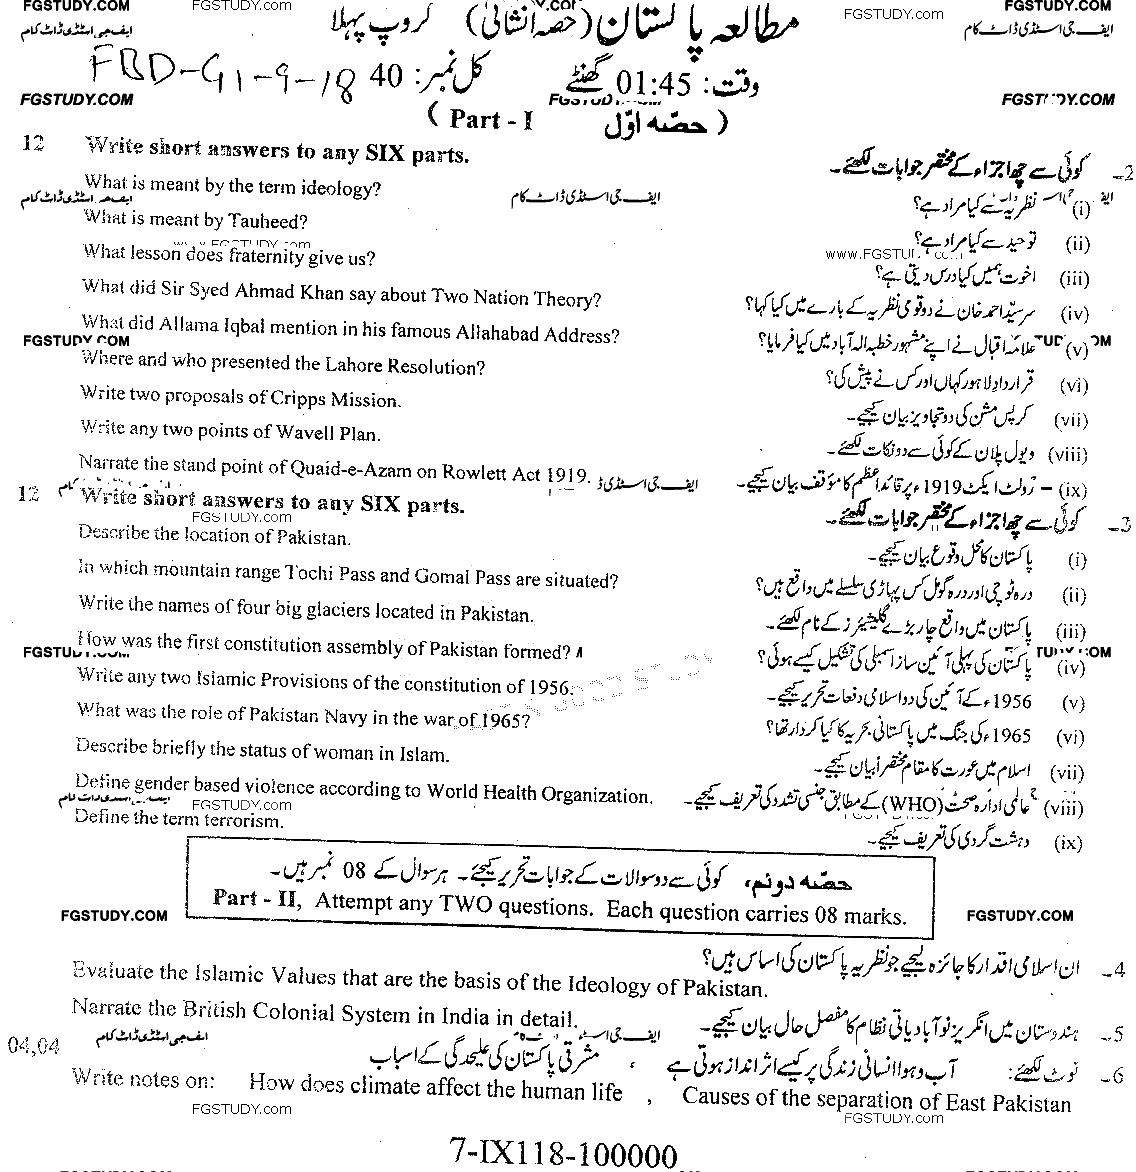 FGSTUDY.COM FGSTUDY.com FGSTUDY.com FGSTUDY.COM
مطالعہ پاکستان (حصہ انشائی) گروپ پہلا
ایف جی اسٹڈی ڈاٹ کام ایف جی اسٹڈی ڈاٹ کام
وقت: 01:45 گھنٹے کل نمبر: 40 FBD-G1-9-18
FGSTUDY.COM FGSTUDY.COM
( Part - I حصہ اوّل )
12 Write short answers to any SIX parts. 2۔ کوئی سے چھ اجزاء کے مختصر جوابات لکھئے۔
What is meant by the term ideology? (i) نظریہ سے کیا مراد ہے؟
ایف جی اسٹڈی ڈاٹ کام
What is meant by Tauheed? (ii) توحید سے کیا مراد ہے؟
What lesson does fraternity give us? (iii) اخوت ہمیں کیا درس دیتی ہے؟
What did Sir Syed Ahmad Khan say about Two Nation Theory? (iv) سرسیّد احمد خان نے دو قومی نظریہ کے بارے میں کیا کہا؟
What did Allama Iqbal mention in his famous Allahabad Address? (v) علامہ اقبال نے اپنے مشہور خطبہ الہ آباد میں کیا فرمایا؟
FGSTUDY.COM
Where and who presented the Lahore Resolution? (vi) قرارداد لاہور کہاں اور کس نے پیش کی؟
Write two proposals of Cripps Mission. (vii) کرپس مشن کی دو تجاویز بیان کیجیے۔
Write any two points of Wavell Plan. (viii) ویول پلان کے کوئی سے دو نکات لکھئے۔
Narrate the stand point of Quaid-e-Azam on Rowlett Act 1919. (ix) رولٹ ایکٹ 1919ء پر قائداعظم کا مؤقف بیان کیجیے۔
12 Write short answers to any SIX parts. 3۔ کوئی سے چھ اجزاء کے مختصر جوابات لکھئے۔
FGSTUDY.com
Describe the location of Pakistan. (i) پاکستان کا محل وقوع بیان کیجیے۔
In which mountain range Tochi Pass and Gomal Pass are situated? (ii) درہ ٹوچی اور درہ گومل کس پہاڑی سلسلے میں واقع ہیں؟
Write the names of four big glaciers located in Pakistan. (iii) پاکستان میں واقع چار بڑے گلیشیئرز کے نام لکھئے۔
How was the first constitution assembly of Pakistan formed? (iv) پاکستان کی پہلی آئین ساز اسمبلی کی تشکیل کیسے ہوئی؟
Write any two Islamic Provisions of the constitution of 1956. (v) 1956ء کے آئین کی دو اسلامی دفعات تحریر کیجیے۔
What was the role of Pakistan Navy in the war of 1965? (vi) 1965ء کی جنگ میں پاکستانی بحریہ کا کیا کردار تھا؟
Describe briefly the status of woman in Islam. (vii) اسلام میں عورت کا مقام مختصراً بیان کیجیے۔
Define gender based violence according to World Health Organization. (viii) عالمی ادارہ صحت (WHO) کے مطابق جنسی تشدد کی تعریف کیجیے۔
FGSTUDY.com
Define the term terrorism. (ix) دہشت گردی کی تعریف کیجیے۔
حصہ دوئم، کوئی سے دو سوالات کے جوابات تحریر کیجئے۔ ہر سوال کے 08 نمبر ہیں۔
Part - II, Attempt any TWO questions. Each question carries 08 marks.
FGSTUDY.COM FGSTUDY.COM
4۔ ان اسلامی اقدار کا جائزہ لیجیے جو نظریہ پاکستان کی اساس ہیں؟
Evaluate the Islamic Values that are the basis of the Ideology of Pakistan.
Narrate the British Colonial System in India in detail. 5۔ ہندوستان میں انگریز نوآبادیاتی نظام کا مفصل حال بیان کیجیے۔
ایف جی اسٹڈی ڈاٹ کام
04,04 6۔ نوٹ لکھئے: آب و ہوا انسانی زندگی پر کیسے اثر انداز ہوتی ہے ، مشرقی پاکستان کی علیحدگی کے اسباب
Write notes on: How does climate affect the human life , Causes of the separation of East Pakistan
FGSTUDY.com FGSTUDY.com
7-IX118-100000